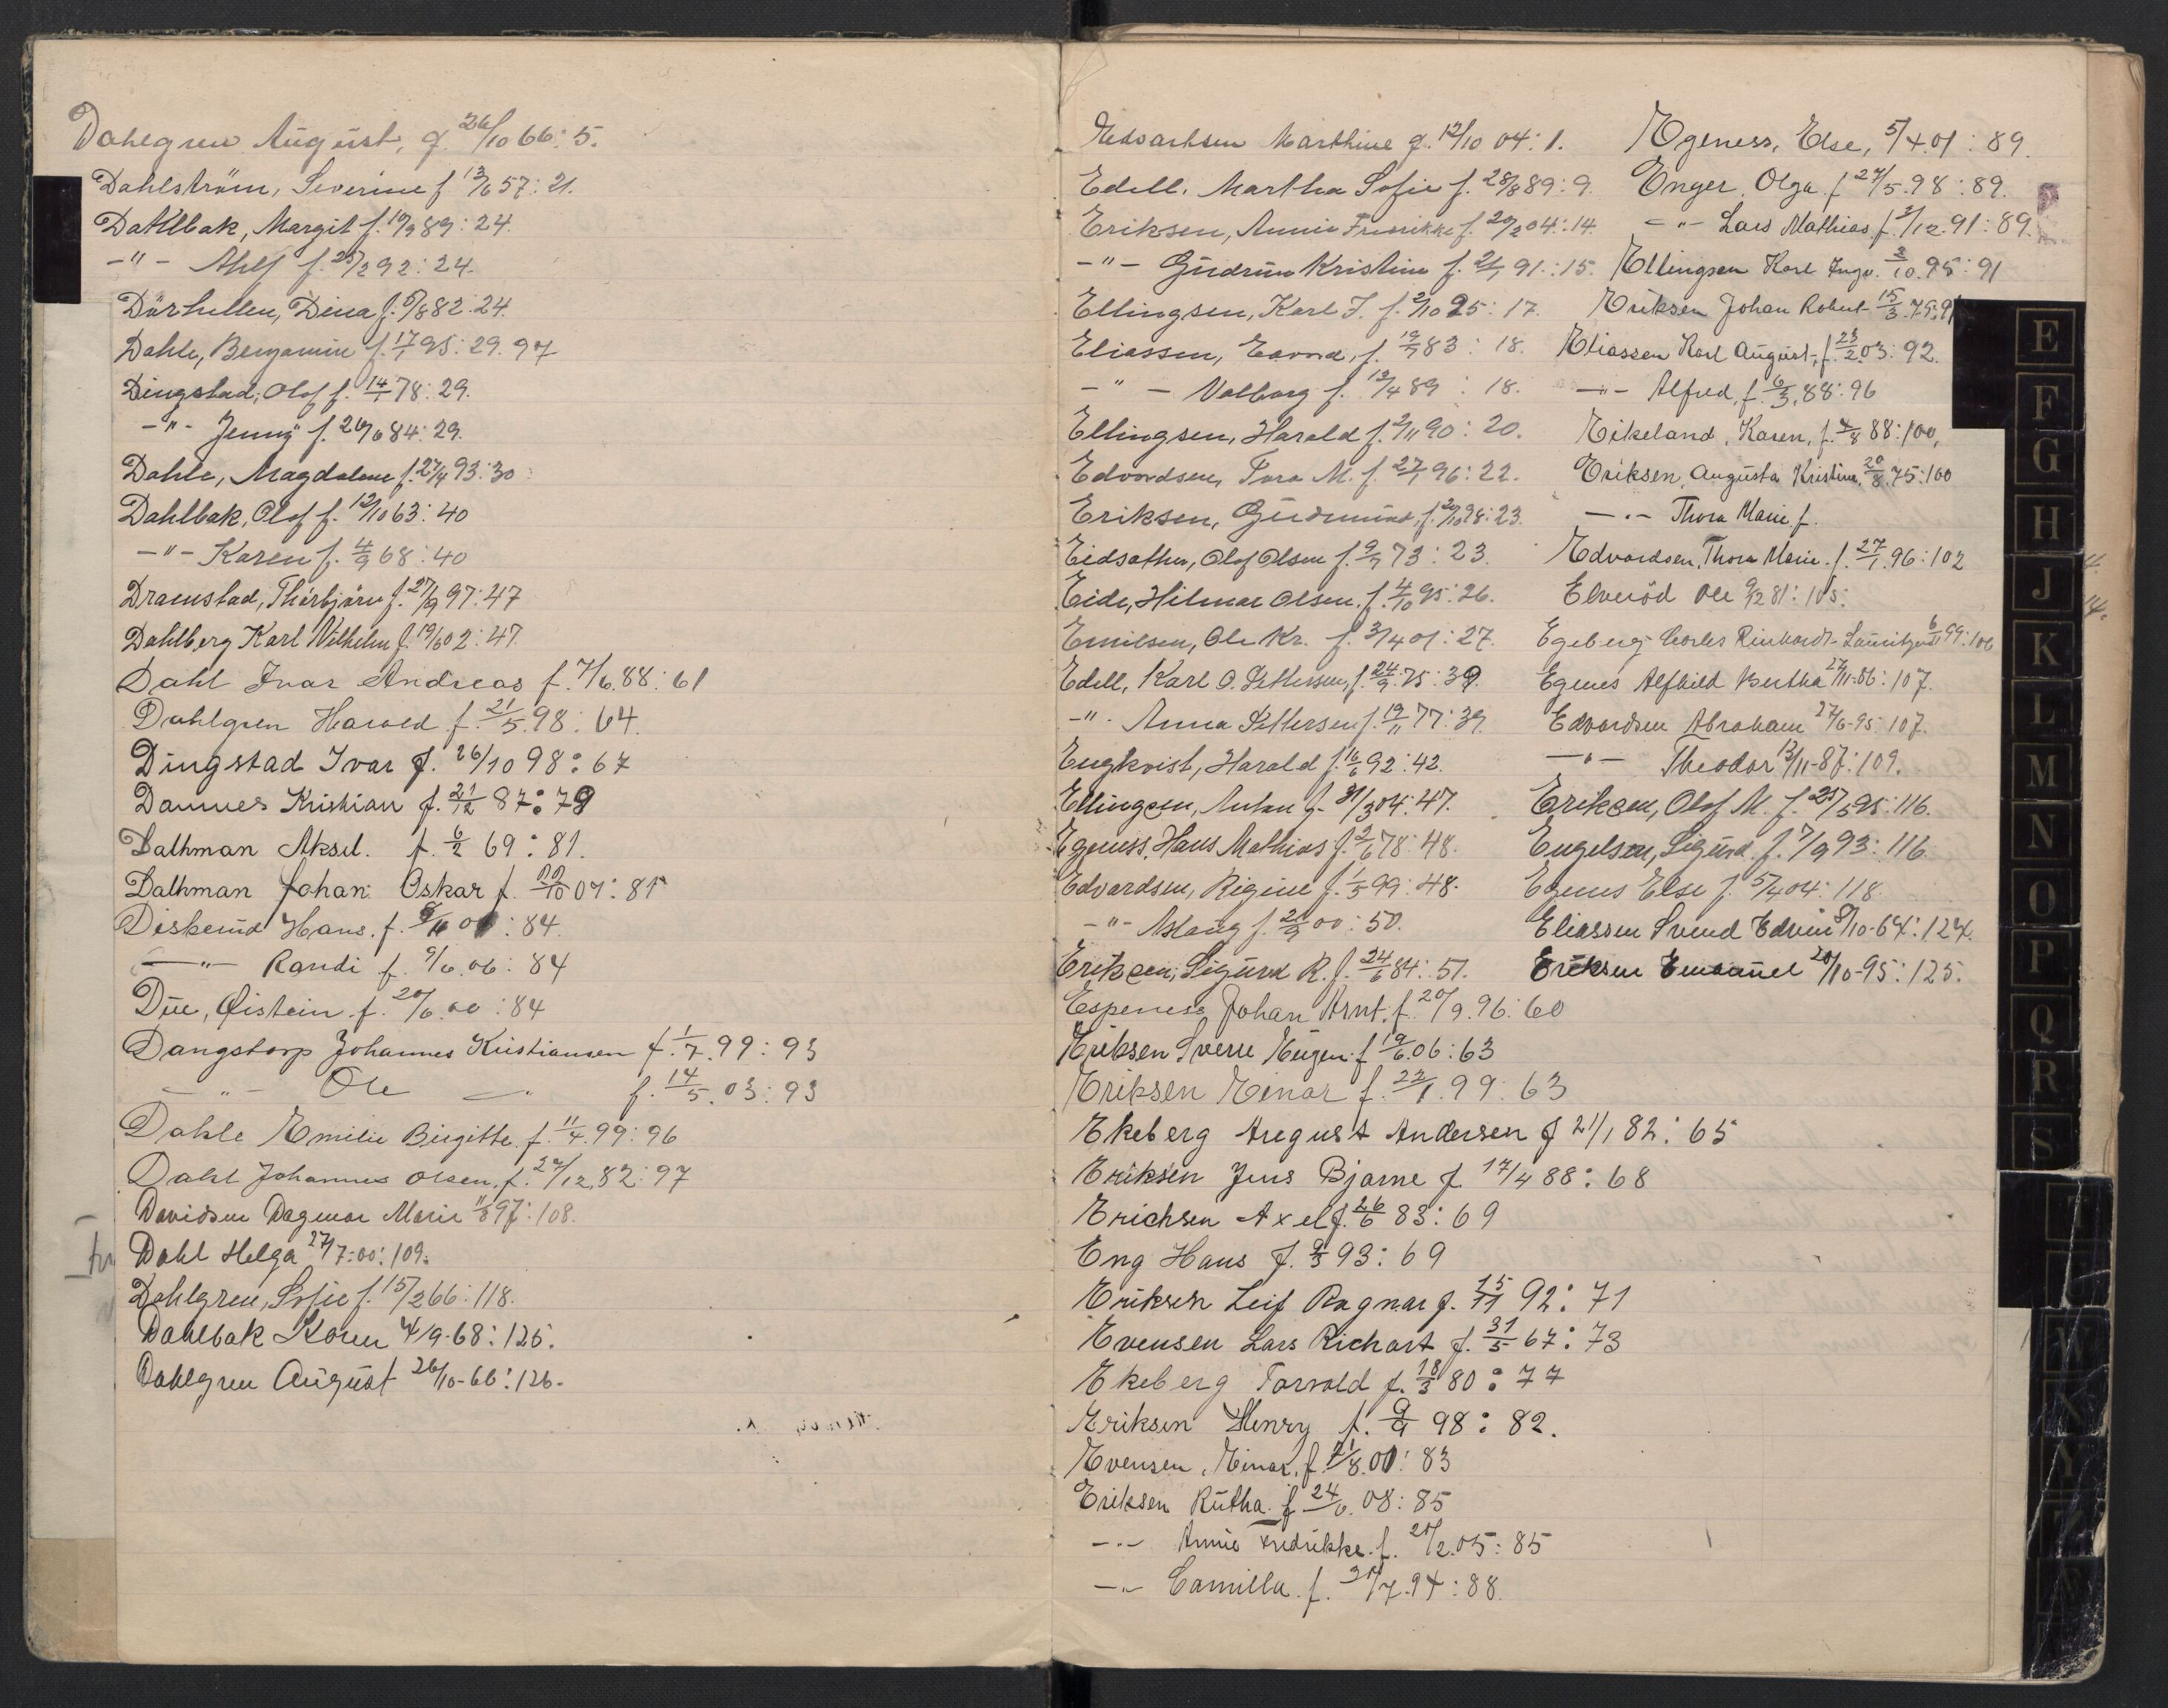 Dahlgren August, f. 26/10 66: 5.
Dahlström, Severine f. 13/6 57: 21.
Dahlbak, Margit f. 19/9 89: 24.
-"- Ahlf f. 25/2 92: 24.
Dörhellen, Dina f. 6/8 82: 24.
Dahle, Benjamin f. 17/1 95: 29. 97
Dingstad, Olof f. 14/1 78: 29.
-"- Jenny f. 26/6 84: 29.
Dahle, Magdalene f. 27/4 93: 30
Dahlbak, Olof f. 12/10 63: 40
-"- Karen f. 4/9 68: 40
Dramstad, Thorbjörn f. 27/9 97: 47
Dahlberg Karl Wilhelm f. 19/6 02: 47.
Dahl Ivar Andreas f. 7/6. 88: 61
Dahlgren Harald f. 21/5. 98: 64.
Dingstad Ivar f. 26/10 98: 67
Dannes Kristian f. 21/12 87: 79
Dalhman Aksel. f. 6/2 69: 81.
Dalhman Johan Oskar f. 22/10 07: 81
Diskerud Hans. f. 9/11 00: 84.
-"- Randi f. 9/6. 06: 84
Due, Øistein. f. 20/6. 00: 84
Dangstorp Johannes Kristiansen f. 1/7. 99: 93
-"- Ole -"- f. 14/5. 03: 93
Dahle Emilie Birgitte. f. 11/4. 99: 96
Dahl Johannes Olsen, f. 27/12. 82: 97
Davidsen Dagmar Marie 11/8 97: 108.
Dahl Helga 27/7-00: 109.
Dahlgren, Sofie f. 15/2 66: 118.
Dahlbak Karen 4/9-68: 125.
Dahlgren August 26/10-66: 126.
Edvardsen Marthine f. 12/10 04: 1.
Edell, Martha Sofie f. 28/8 89: 9.
Eriksen, Annie Fredrikke f. 20/2 04: 14.
-"- Gudrun Kristine f. 21/1 91: 15.
Ellingsen, Karl J. f. 2/10 95: 17.
Eliassen, f. 19/7 83: 18.
-"- Valborg f. 12/4 89: 18.
Ellingsen, Harald f. 2/11 90: 20.
Edvardsen, Tora M. f. 27/1 96: 22.
Eriksen, Gudmund, f. 20/10 98: 23.
Eidsather, Olof Olsen f. 9/7 73: 23.
Eide, Hilmar Olsen. f. 4/10 95: 26.
Emilsen, Ole Kr. f. 3/4 01: 27.
Edell, Karl O. Pettersen, f. 24/9 75: 39.
-"- Anna Pettersen f. 19/11 77: 39.
Engkvist, Harald f. 16/6 92: 42.
Ellingsen, Anton f. 31/3 04: 47.
Egeness, Hans Mathias f. 2/6 78: 48.
Edvardsen, Rigine f. 1/5 99: 48.
-"- Aslaug f. 21/9 00: 50.
Eriksen, Sigurd R. f. 24/6 84: 51.
Espenes, Johan Arnt. f. 20/9. 96: 60
Eriksen Sverre Eugen f. 19/6. 06: 63
Eriksen Einar f. 22/1. 99: 63
Ekeberg August Andersen f 21/1 82: 65
Eriksen Jens Bjarne f. 17/4 88: 68
Erichsen Axel f. 26/6 83: 69
Eng Hans f. 9/3 93: 69
Eriksen Leif Ragnar f. 15/11 92: 71
Evensen Lars Richart f. 31/5 67: 73
Ekeberg Torvald f. 18/3 80: 77
Eriksen Henry f. 9/9 98: 82.
Evensen, Einar, f. 21/8. 00: 83
Eriksen Rutha f. 24/6. 08: 85
-"- Annie Fredrikke. f. 20/2. 05: 85
-"- Camilla. f. 30/7. 94: 88.
Egeness, Else, 5/4. 01: 89.
Enger, Olga. f 27/5. 98: 89.
-"- Lars Mathias f. 2/12. 91: 89.
Ellingsen Karl Ingv. 2/10. 95: 91
Eriksen Johan Robert 15/3. 75: 91
Eliassen Karl August, f. 23/2 03: 92.
-"- Alfred, f. 6/3. 88: 96
Eikeland, Karen, f. 4/8 88: 100,
Eriksen, Augusta Kristine, 20/8. 75: 100
-"- Thora Marie f.
Edvardsen, Thora Marie. f. 27/1. 96: 102
Elveröd Ole 9/12 81: 105.
Egeberg Charles Reinhardt Lauritzen 6/6 99: 106
Egenes Alfhild Bertha 27/11-86: 107.
Edvardsen Abraham 27/6-95: 107.
-"- Theodor 13/11-87: 109.
Eriksen, Olof M. f. 25/5 95: 116.
Engelsen, Sigurd. f. 7/9 93: 116
Egenes Else f. 5/4 04: 118.
Eliassen Svend Edvin 8/10-64: 124.
Eriksen Emanuel 20/10-95: 125.
E
F
G
H
J
K
L
M
N
O
P
Q
R
S